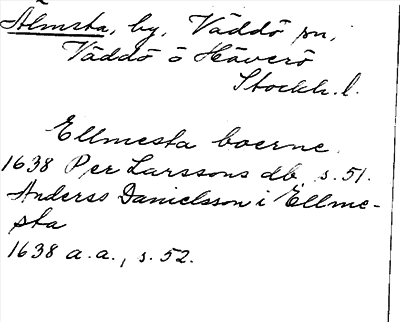 Älmsta, by, Väddö sn,
Väddö o Häverö
Stockh. l.
Ellmesta boerne
1638 Per Larssons db, s. 51.
Anders Danielsson i Ellme-
sta
1638 a.a., s. 52.